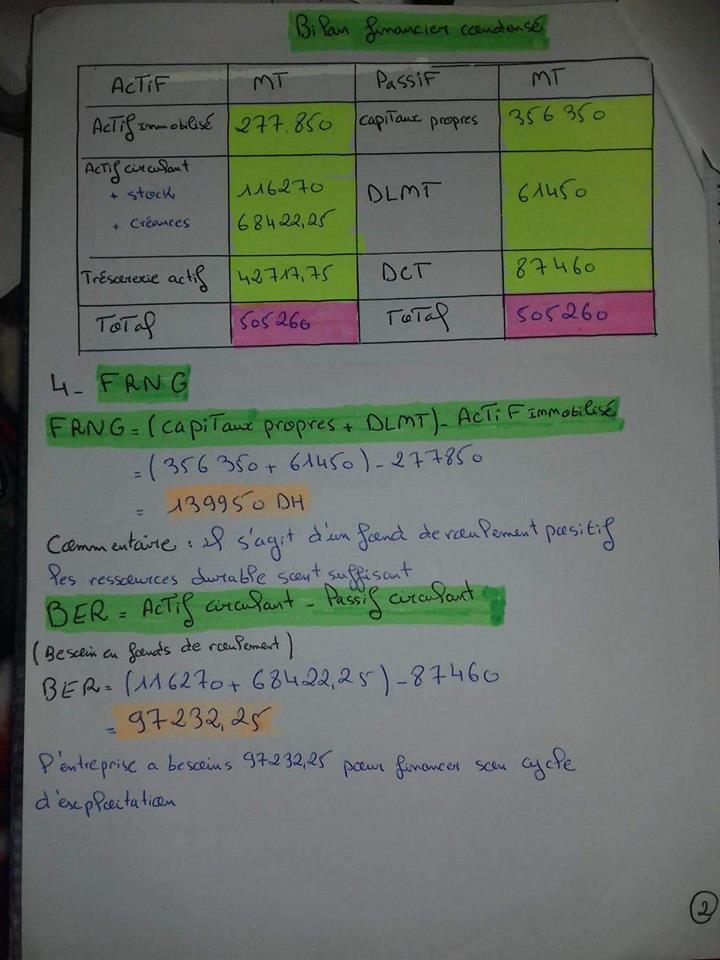 Bilan financier condensé
ACTIF MT PASSIF MT
Actif immobilisé 277.850 capitaux propres 356 350
Actif circulant
+ stock 116270 DLMT 61450
+ créances 68422,25
Tréscorerie actif 42717,75 DCT 87460
TOTAL 505260 TOTAL 505260
4- FRNG
FRNG = (capitaux propres + DLMT) - ACTIF immobilisé
= (356 350 + 61450) - 277850
= 139950 DH
Commentaire : il s'agit d'un fond de roulement positif
les ressources durable sont suffisant
BFR = Actif circulant - Passif circulant
(Besoin en fonds de roulement)
BFR = (116270 + 68422,25) - 87460
= 97232,25
l'entreprise a besoins 97232,25 pour financer son cycle
d'exploitation
2